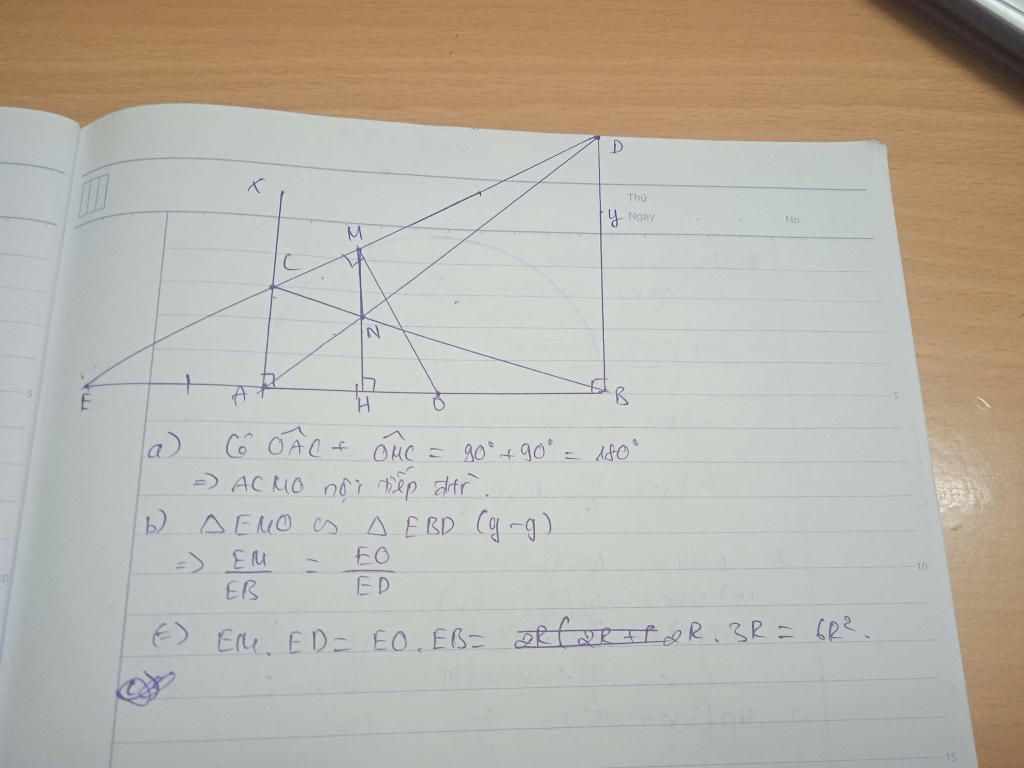 D
x
Thứ
y
Ngày
No.
M
C
N
E
A
H
O
B
5
5
a) Có OÂC + OM̂C = 90° + 90° = 180°
=> ACMO nội tiếp đtr.
b) △ EMO ∽ △ EBD (g-g)
=> EM/EB = EO/ED
10
(=) EM. ED = EO. EB = 2R. 3R = 6R².
15